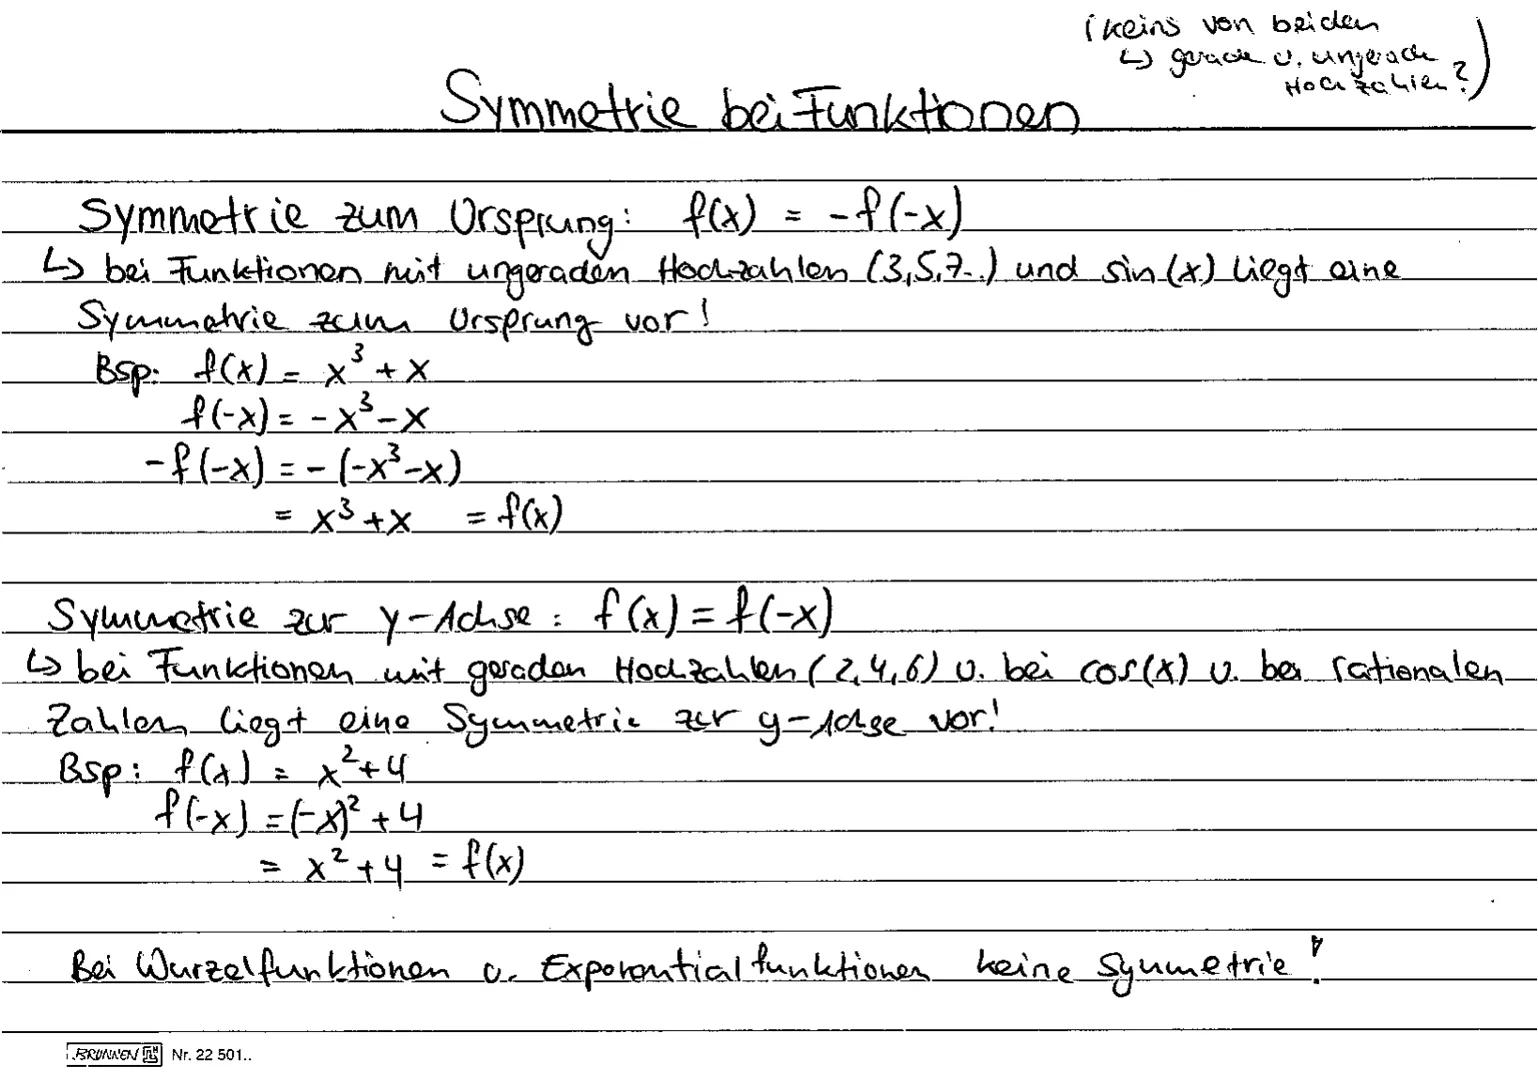 (keins von beiden
↳ gerade u. ungerade
Hochzahlen?)
Symmetrie bei Funktionen
Symmetrie zum Ursprung: f(x) = -f(-x)
↳ bei Funktionen mit ungeraden Hochzahlen (3,5,7..) und sin(x) liegt eine
Symmetrie zum Ursprung vor!
Bsp: f(x) = x³ + x
f(-x) = -x³-x
-f(-x) = -(-x³-x)
= x³+x = f(x)
Symmetrie zur y-Achse: f(x) = f(-x)
↳ bei Funktionen mit geraden Hochzahlen (2,4,6) u. bei cos(x) u. bei rationalen
Zahlen liegt eine Symmetrie zur y-Achse vor!
Bsp: f(x) = x²+4
f(-x) = (-x)²+4
= x²+4 = f(x)
Bei Wurzelfunktionen u. Exponentialfunktionen keine Symmetrie!
BRUNNEN Nr. 22 501..